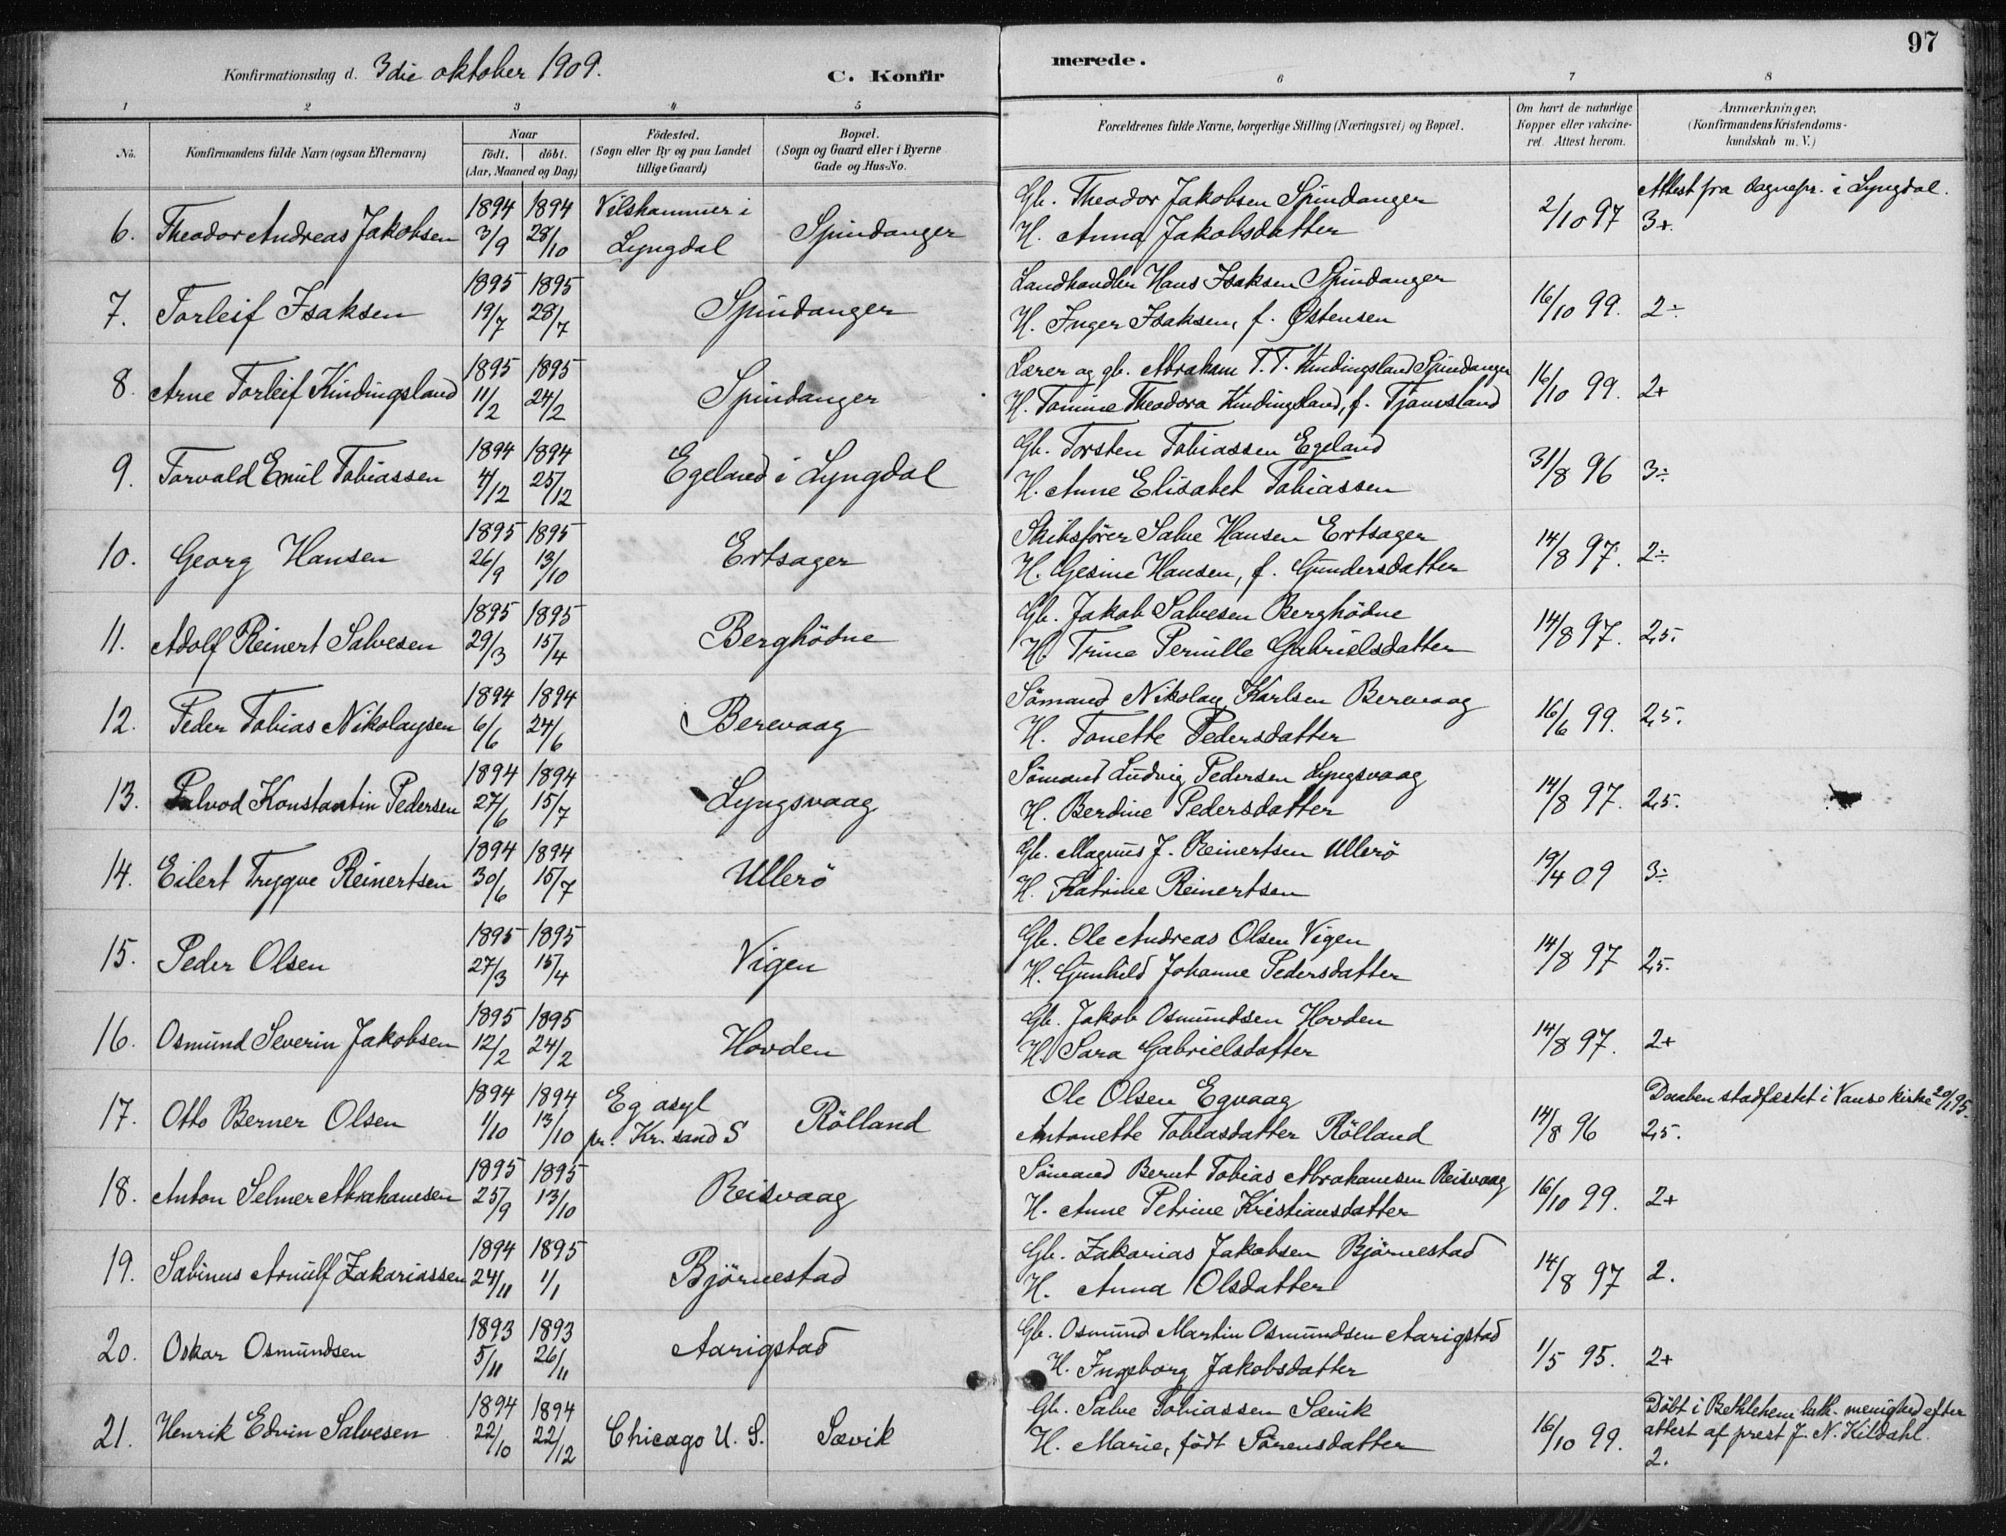 97
Konfirmationsdag d. 3die oktober 1909.
C. Konfirmerede.
1 2 3 4 5 6 7 8
No. Konfirmandens fulde Navn (ogsaa Efternavn) Naar födt. döbt. (Aar, Maaned og Dag) Födested. (Sogn eller By og paa Landet tillige Gaard) Bopæl. (Sogn og Gaard eller i Byerne Gade og Hus-No. Forældrenes fulde Navne, borgerlige Stilling (Næringsvei) og Bopæl. Om havt de naturlige Kopper eller vakcineret. Attest herom. Anmærkninger. (Konfirmandens Kristendomskundskab m. V.)
6. Theodor Andreas Jakobsen 1894 3/9 1894 28/10 Vilshammer i Lyngdal Spindanger Gb. Theodor Jakobsen Spindanger 2/10 97 Attest fra sognepr. i Lyngdal.
H. Anna Jakobsdatter 3+
7. Torleif Isaksen 1895 19/7 1895 28/7 Spindanger Landhandler Hans Isaksen Spindanger 16/10 99. 2÷
H. Inger Isaksen, f. Østensen
8. Arne Torleif Kindingsland 1895 11/2 1895 24/2 Spindanger Lærer og gb. Abraham T. T. Kindingsland Spindanger 16/10 99. 2+
H. Tomine Theodora Kindingsland, f. Tjomsland
9. Torvald Emil Tobiassen 1894 4/12 1894 25/12 Egeland i Lyngdal Gb. Torsten Tobiassen Egeland 31/8 96 3÷
H. Anne Elisabet Tobiassen
10. Georg Hansen 1895 26/9 1895 13/10 Ertsager Skibsfører Salve Hansen Ertsager 14/8 97. 2÷
H. Gesine Hansen, f. Gundersdatter
11. Adolf Reinert Salvesen 1895 29/3 1895 15/4 Berghödne Gb. Jakob Salvesen Berghödne 14/8 97. 2,5.
H. Trine Pernille Gabrielsdatter
12. Peder Tobias Nikolaysen 1894 6/6 1894 24/6 Berevaag Sömand Nikolay Karlsen Berevaag 16/6 99. 2,5.
H. Tonette Pedersdatter
13. Salvod Konstantin Pedersen 1894 27/6 1894 15/7 Lyngsvaag Sömand Ludvig Pedersen Lyngsvaag 14/8 97. 2,5.
H. Berdine Pedersdatter
14. Eilert Trygve Reinertsen 1894 30/6 1894 15/7 Ullerö Gb. Magnus J. Reinertsen Ullerö 19/4 09 3÷
H. Katrine Reinertsen
15. Peder Olsen 1895 27/3 1895 15/4 Vigen Gb. Ole Andreas Olsen Vigen 14/8 97 2,5.
H. Gunhild Johanne Pedersdatter
16. Osmund Severin Jakobsen 1895 12/2 1895 24/2 Hovden Gb. Jakob Osmundsen Hovden 14/8 97. 2+
H. Sara Gabrielsdatter
17. Otto Berner Olsen 1894 1/10 1894 13/10 Eg asyl pr. Kr.sand S Rölland Ole Olsen Egvaag 14/8 96 Daaben stadfæstet i Vanse kirke 20/1 95.
Antonette Tobiasdatter Rölland 2,5.
18. Anton Selmer Abrahamsen 1895 25/9 1895 13/10 Reisvaag Sömand Bernt Tobias Abrahamsen Reisvaag 16/10 99. 2+
H. Anne Petrine Kristiansdatter
19. Sabinus Arnulf Zakariassen 1894 24/11 1895 1/1 Björnestad Gb. Zakarias Jakobsen Björnestad 14/8 97 2.
H. Anna Olsdatter
20. Oskar Osmundsen 1893 5/11 1893 26/11 Aarigstad Gb. Osmund Martin Osmundsen Aarigstad 1/5 95. 2+
H. Ingeborg Jakobsdatter
21. Henrik Edvin Salvesen 1894 22/10 1894 22/12 Chicago U. S. Sævik Gb. Salve Tobiassen Sævik 16/10 99. Döbt i Bethlehem luth. menighed efter
H. Marie, födt Sörensdatter attest af prest J. N. Kildahl.
2.